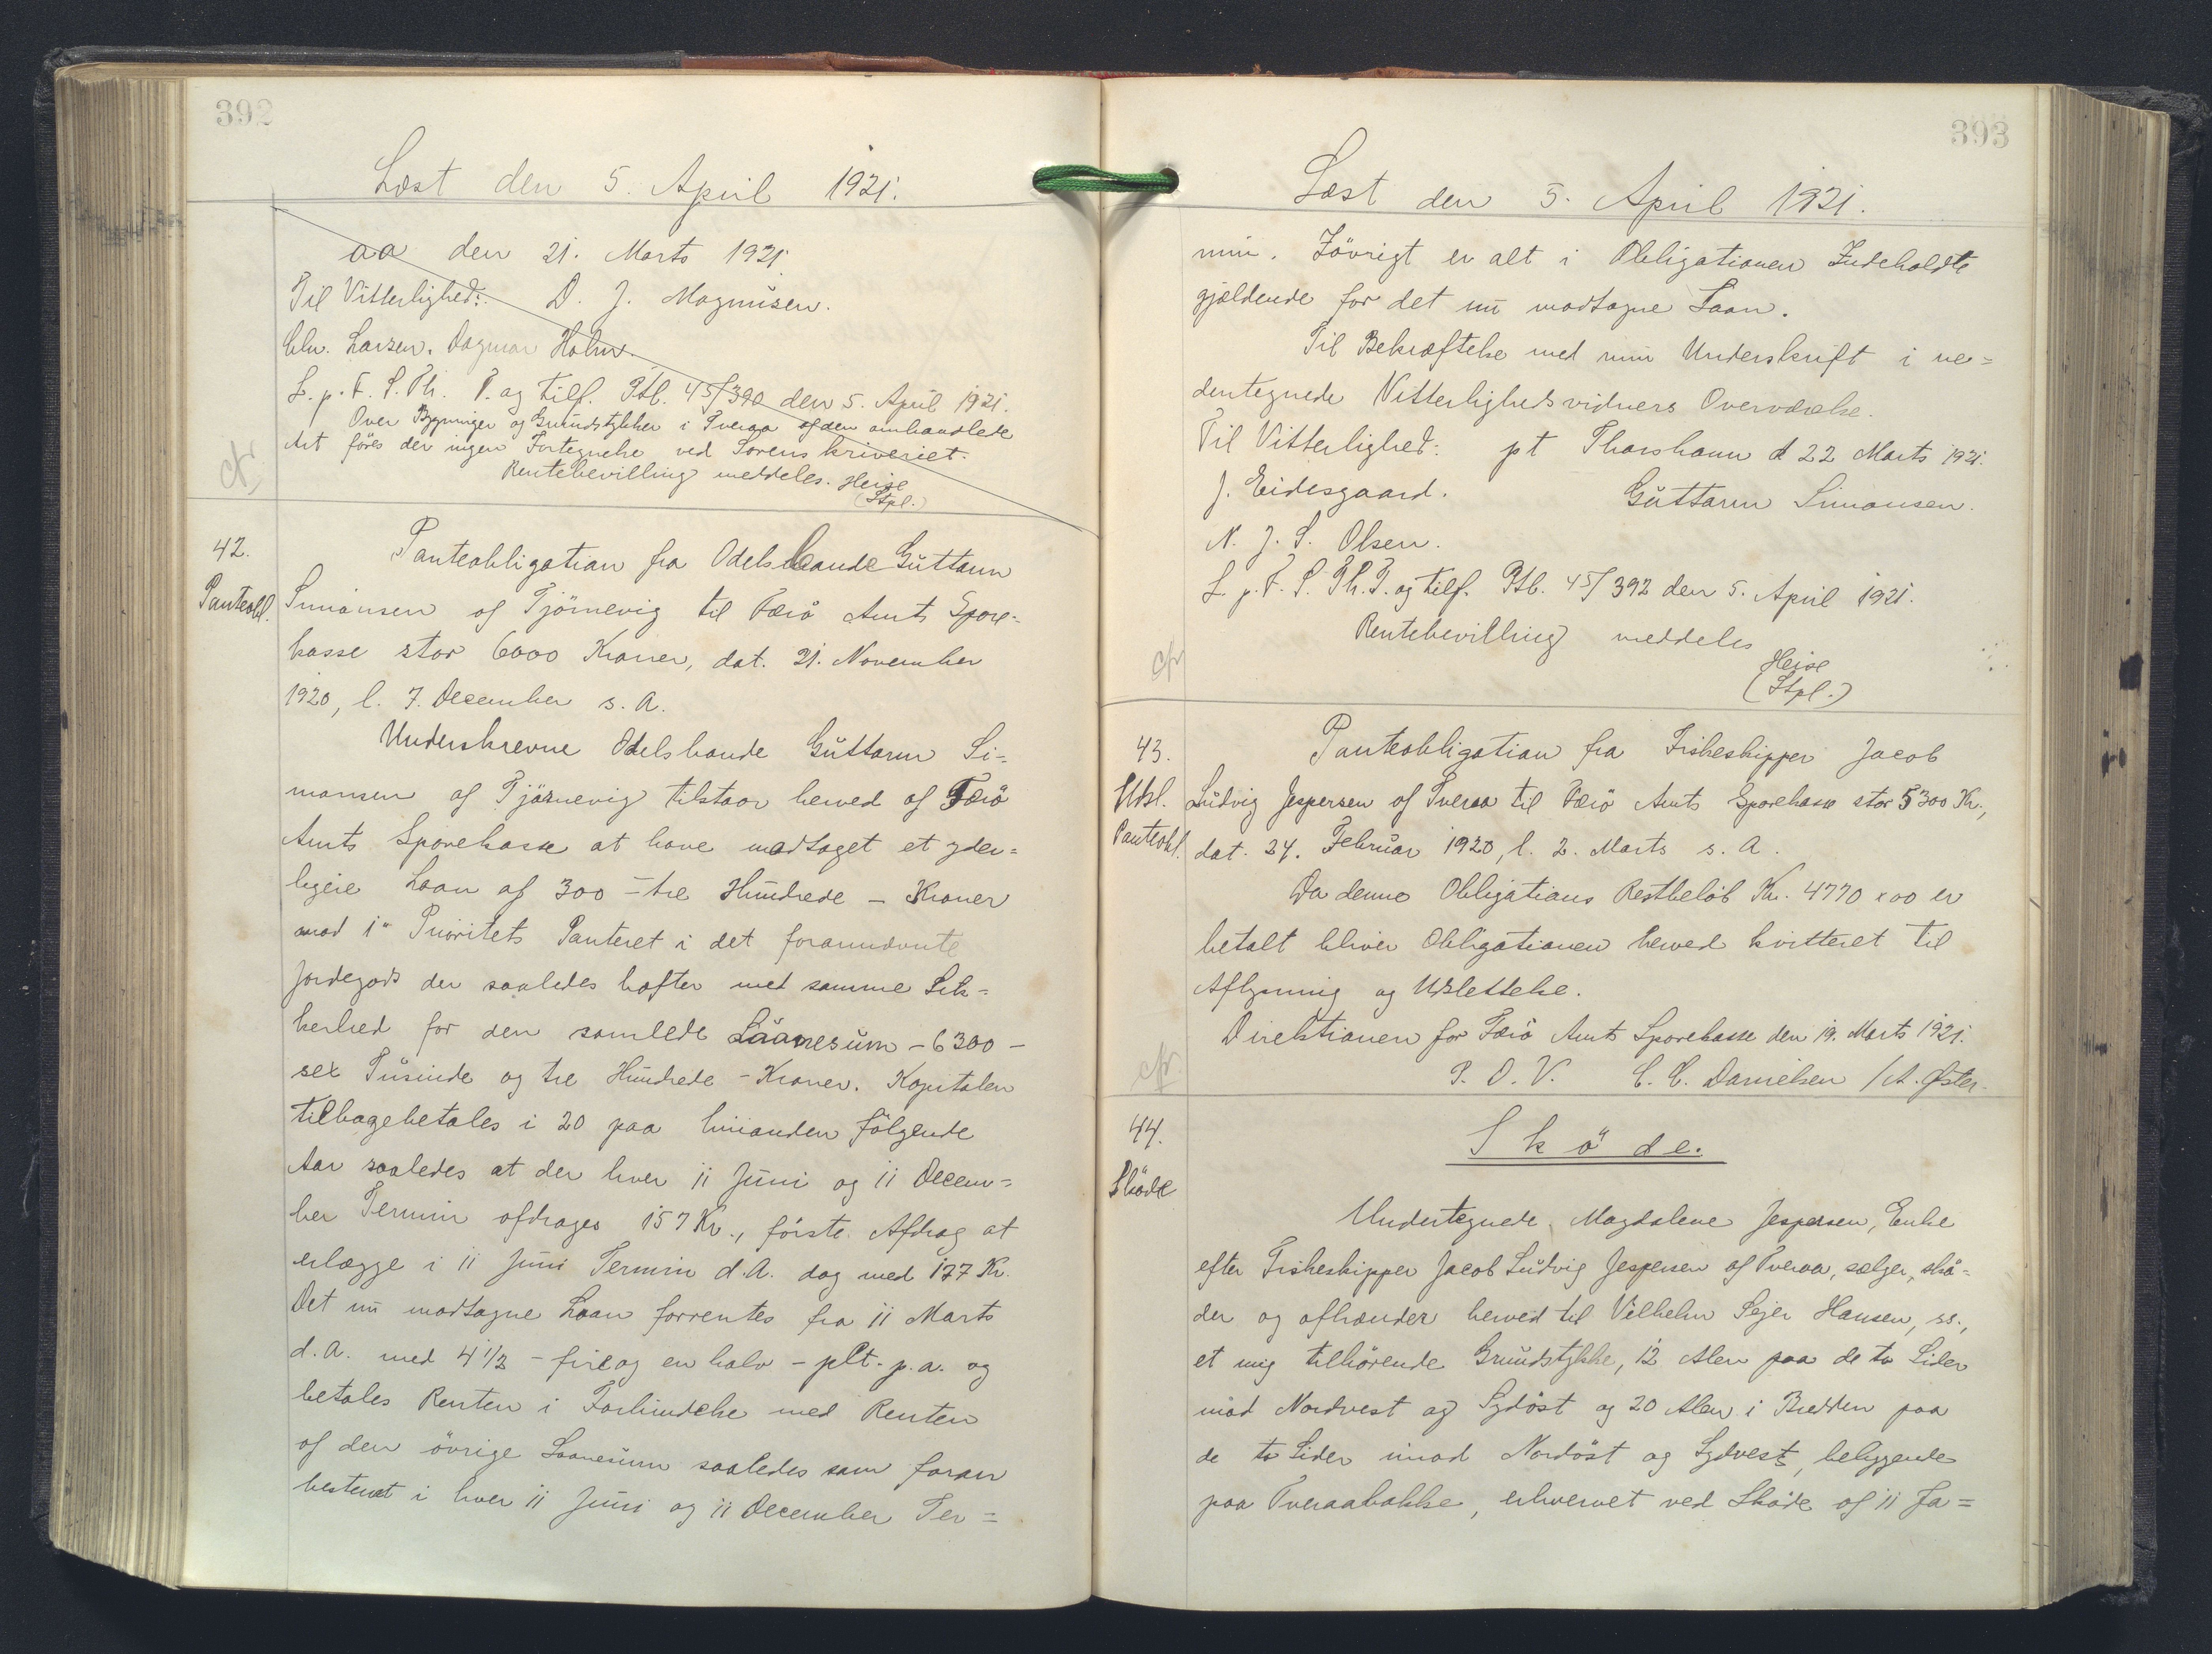 392
Læst den 5. April 1921.
aa den 21. Marts 1921.
Til Vitterlighed: D. J. Magnusen.
Chr. Larsen. Dagmar Holm.
L. p. F. S. Th. P. og tilf. Ptb. 45/390 den 5. April 1921.
Over Bygninger og Grundstykker i Tveraa af den omhandlede
Art føres der ingen Fortegnelse ved Sorenskriveriet.
cfr
Rentebevilling meddeles. Heise
(Stpl.)
42.
Panteobl.
Panteobligation fra Odelsbonde Guttorm
Simonsen af Tjörnevig til Færö Amts Spare-
kasse stor 6000 Kroner, dat. 21. November
1920, l. 7. December s. A.
Underskrevne Odelsbonde Guttorm Si-
monsen af Tjörnevig tilstaar herved af Færö
Amts Sparekasse at have modtaget et yder-
ligere Laan af 300 - tre Hundrede - Kroner
mod 1ste Prioritets Panteret i det forannævnte
Jordegods der saaledes hæfter med samme Sik-
kerhed for den samlede Laanesum - 6300 -
sex Tusinde og tre Hundrede - Kroner. Kapitalen
tilbagebetales i 20 paa hinanden fölgende
Aar saaledes at der hver 11 Juni og 11 Decem-
ber Termin afdrages 157 Kr., förste Afdrag at
erlægge i 11 Juni Termin d. A. dog med 177 Kr.
Det nu modtagne Laan forrentes fra 11 Marts
d. A. med 4 1/2 - fire og en halv - pCt. p. a. og
betales Renten i Forbindelse med Renten
af den övrige Laanesum saaledes som foran
bestemt i hver 11 Juni og 11 December Ter-
393
Læst den 5. April 1921.
min. Iövrigt er alt i Obligationen Indeholdte
gjældende for det nu modtagne Laan.
Til Bekræftelse med min Underskrift i ne-
dentegnede Vitterlighedsvidners Overværelse.
Til Vitterlighed: pt Thorshavn d 22 Marts 1921.
J. Eidesgaard. Guttorm Simonsen.
N. J. S. Olsen.
L. p. F. S. Th. P. og tilf. Ptb. 45/392 den 5. April 1921.
Rentebevilling meddeles
cfr
Heise
(Stpl.)
43.
Udsl.
Panteobl.
Panteobligation fra Fiskeskipper Jacob
Ludvig Jespersen af Tveraa til Færö Amts Sparekasse stor 5300 Kr.,
dat. 24. Februar 1920, l. 2. Marts s. A.
Da denne Obligations Restbelöb Kr. 4770 x 00 er
betalt bliver Obligationen herved kvitteret til
Aflysning og Udslettelse.
Direktionen for Færö Amts Sparekasse den 19. Marts 1921.
cfr.
P. D. V. C. C. Danielsen / A. Øster.
44.
Sköde
Sköde.
Undertegnede, Magdalene Jespersen, Enke
efter Fiskeskipper Jacob Ludvig Jespersen af Tveraa, sælger, skö-
der og afhænder herved til Vilhelm Sejer Hansen, ss.,
et mig tilhörende Grundstykke, 12 Alen paa de to Sider
imod Nordvest og Sydöst og 20 Alen i Bredden paa
de to Sider imod Nordöst og Sydvest, beliggende
paa Tveraabakke, erhvervet ved Sköde af 11 Ja-